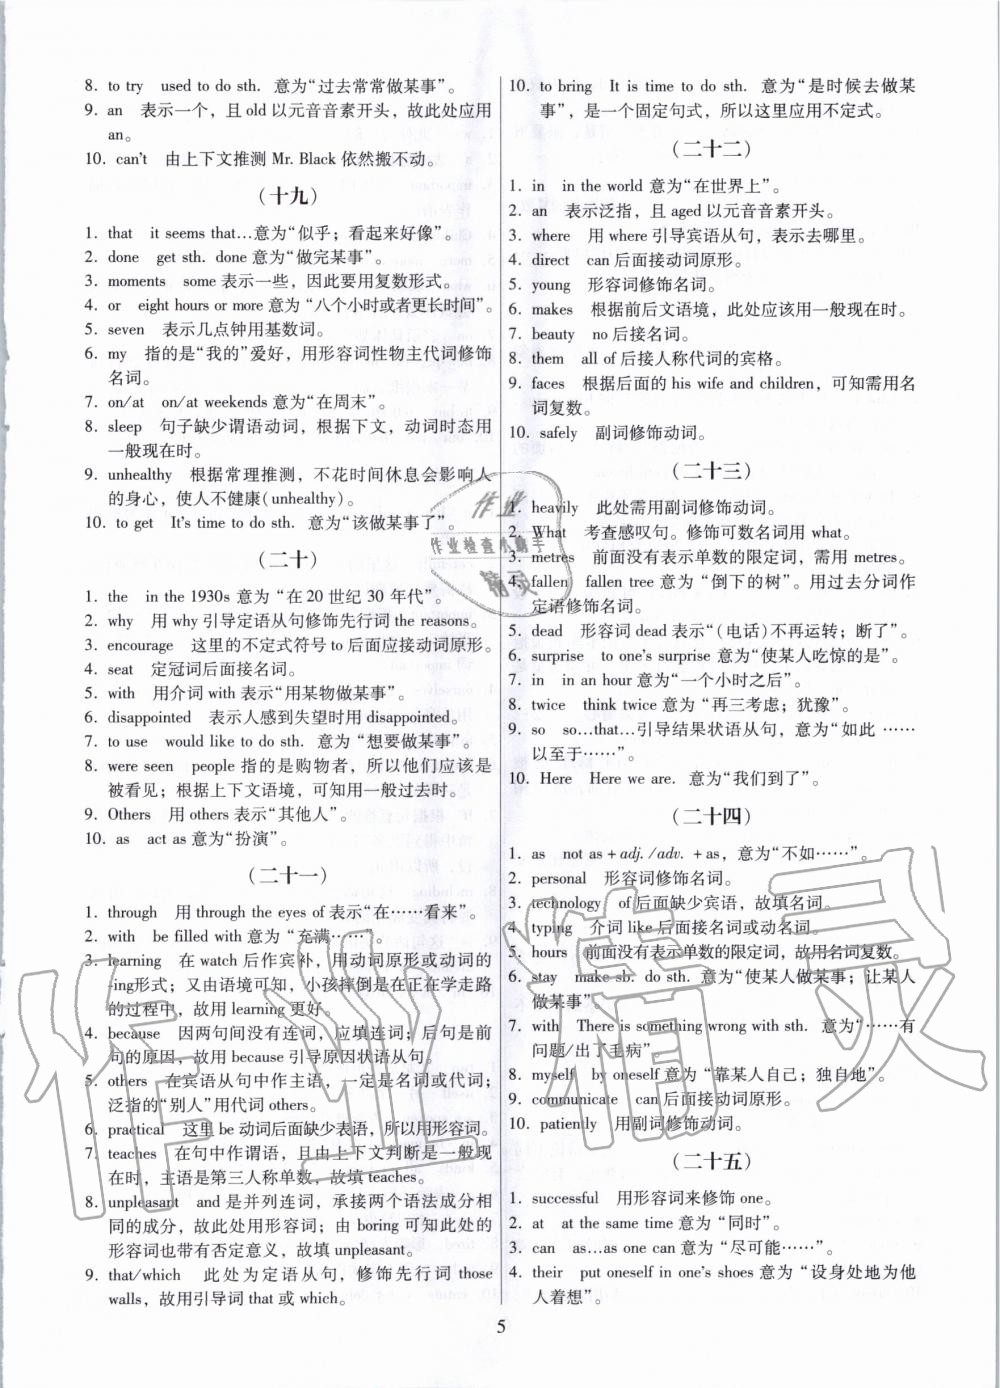 8. to try　used to do sth. 意为“过去常常做某事”。
9. an　表示一个，且 old 以元音音素开头，故此处应用
an。
10. can't　由上下文推测 Mr. Black 依然搬不动。
（十九）
1. that　it seems that…意为“似乎；看起来好像”。
2. done　get sth. done 意为“做完某事”。
3. moments　some 表示一些，因此要用复数形式。
4. or　eight hours or more 意为“八个小时或者更长时间”。
5. seven　表示几点钟用基数词。
6. my　指的是“我的”爱好，用形容词性物主代词修饰
名词。
7. on/at　on/at weekends 意为“在周末”。
8. sleep　句子缺少谓语动词，根据下文，动词时态用
一般现在时。
9. unhealthy　根据常理推测，不花时间休息会影响人
的身心，使人不健康(unhealthy)。
10. to get　It's time to do sth. 意为“该做某事了”。
（二十）
1. the　in the 1930s 意为“在 20 世纪 30 年代”。
2. why　用 why 引导定语从句修饰先行词 the reasons。
3. encourage　这里的不定式符号 to 后面应接动词原形。
4. seat　定冠词后面接名词。
5. with　用介词 with 表示“用某物做某事”。
6. disappointed　表示人感到失望时用 disappointed。
7. to use　would like to do sth. 意为“想要做某事”。
8. were seen　people 指的是购物者，所以他们应该是
被看见；根据上下文语境，可知用一般过去时。
9. Others　用 others 表示“其他人”。
10. as　act as 意为“扮演”。
（二十一）
1. through　用 through the eyes of 表示“在……看来”。
2. with　be filled with 意为“充满……”。
3. learning　在 watch 后作宾补，用动词原形或动词的
-ing形式；又由语境可知，小孩摔倒是在正在学走路
的过程中，故用 learning 更好。
4. because　因两句间没有连词，应填连词；后句是前
句的原因，故用 because 引导原因状语从句。
5. others　在宾语从句中作主语，一定是名词或代词；
泛指的“别人”用代词 others。
6. practical　这里 be 动词后面缺少表语，所以用形容词。
7. teaches　在句中作谓语，且由上下文判断是一般现
在时，主语是第三人称单数，故填 teaches。
8. unpleasant　and 是并列连词，承接两个语法成分相
同的成分，故此处用形容词；由 boring 可知此处的
形容词也带有否定意义，故填 unpleasant。
9. that/which　此处为定语从句，修饰先行词 those
walls，故用引导词 that 或 which。
10. to bring　It is time to do sth. 意为“是时候去做某
事”，是一个固定句式，所以这里应用不定式。
（二十二）
1. in　in the world 意为“在世界上”。
2. an　表示泛指，且 aged 以元音音素开头。
3. where　用 where 引导宾语从句，表示去哪里。
4. direct　can 后面接动词原形。
5. young　形容词修饰名词。
6. makes　根据前后文语境，此处应该用一般现在时。
7. beauty　no 后接名词。
8. them　all of 后接人称代词的宾格。
9. faces　根据后面的 his wife and children，可知需用名
词复数。
10. safely　副词修饰动词。
（二十三）
1. heavily　此处需用副词修饰动词。
2. What　考查感叹句。修饰可数名词用 what。
3. metres　前面没有表示单数的限定词，需用 metres。
4. fallen　fallen tree 意为“倒下的树”。用过去分词作
定语修饰名词。
5. dead　形容词 dead 表示“(电话)不再运转；断了”。
6. surprise　to one's surprise 意为“使某人吃惊的是”。
7. in　in an hour 意为“一个小时之后”。
8. twice　think twice 意为“再三考虑；犹豫”。
9. so　so…that…引导结果状语从句，意为“如此……
以至于……”。
10. Here　Here we are. 意为“我们到了”。
（二十四）
1. as　not as + adj. /adv. + as，意为“不如……”。
2. personal　形容词修饰名词。
3. technology　of 后面缺少宾语，故填名词。
4. typing　介词 like 后面接名词或动名词。
5. hours　前面没有表示单数的限定词，故用名词复数。
6. stay　make sb. do sth. 意为“使某人做某事；让某人
做某事”。
7. with　There is something wrong with sth. 意为“……有
问题/出了毛病”
8. myself　by oneself 意为“靠某人自己；独自地”。
9. communicate　can 后面接动词原形。
10. patiently　用副词修饰动词。
（二十五）
1. successful　用形容词来修饰 one。
2. at　at the same time 意为“同时”。
3. can　as…as one can 意为“尽可能……”。
4. their　put oneself in one's shoes 意为“设身处地为他
人着想”。
5
作业
作业检查小助手
精灵
作业精灵